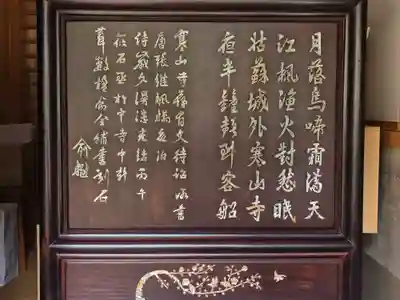 月落烏啼霜滿天
江楓漁火對愁眠
姑蘇城外寒山寺
夜半鐘聲到客船
寒山寺舊有文待詔所書
唐張繼楓橋夜泊
詩歲久漫漶光緒丙午
筱石中丞於寺中新
葺數楹屬余補書刻石
俞樾